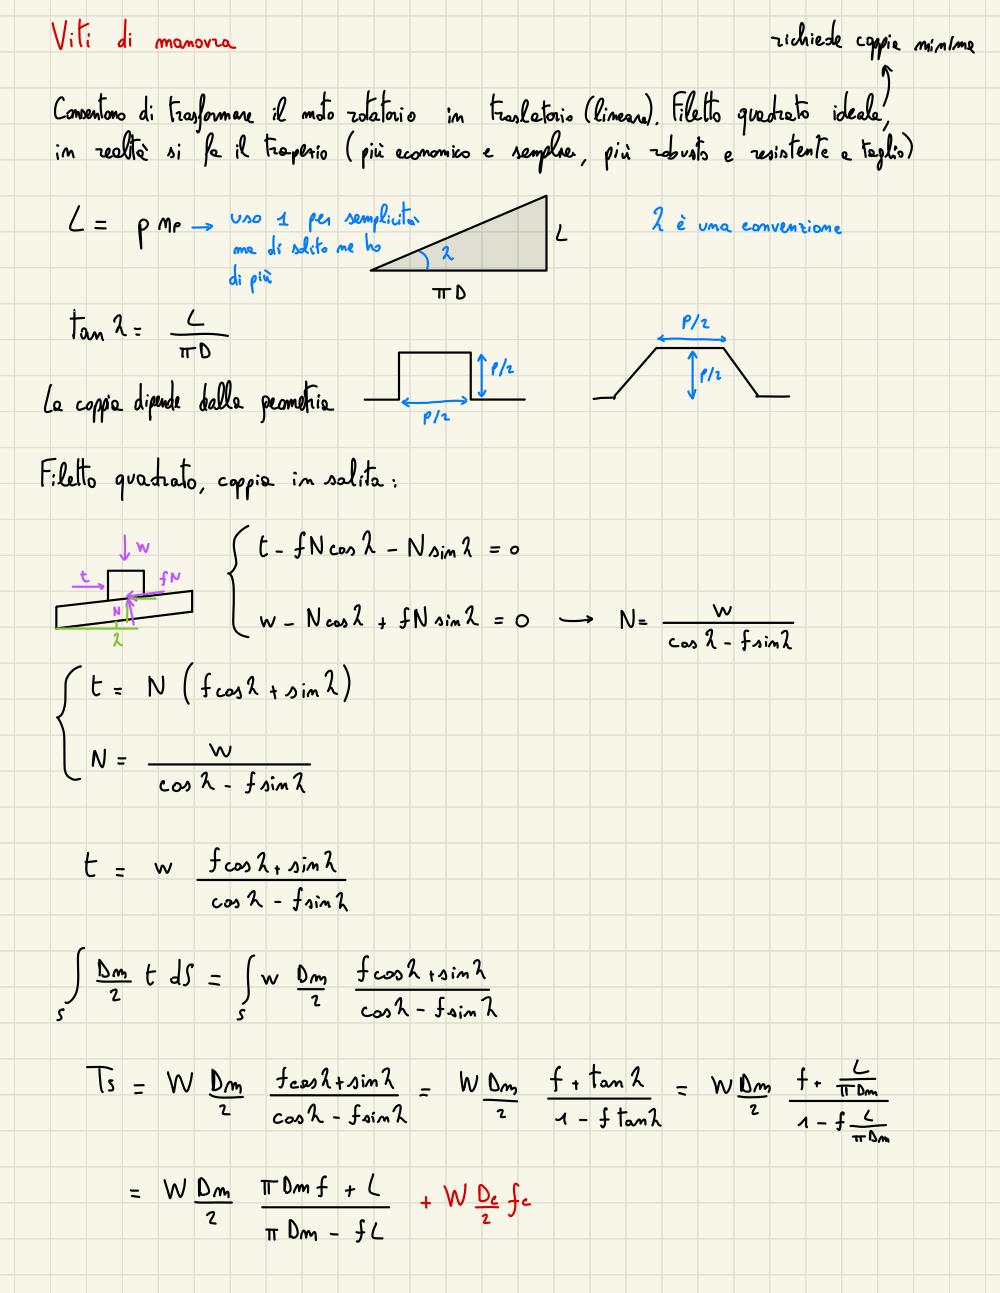 Viti di manovra
richiede coppia minima
Consentono di trasformare il moto rotatorio in traslatorio (lineare). Filetto quadrato ideale,
in realtà si fa il trapezio (più economico e semplice, più robusto e resistente a taglio)
L = p np → uso 1 per semplicità
ma di solito ne ho
di più
λ
L
πD
λ è una convenzione
tan λ = L / πD
P/2
P/2
P/2
P/2
La coppia dipende dalla geometria
Filetto quadrato, coppia in salita:
w
t
fN
N
λ
t - fN cos λ - N sin λ = 0
w - N cos λ + fN sin λ = 0 → N = w / (cos λ - f sin λ)
t = N (f cos λ + sin λ)
N = w / (cos λ - f sin λ)
t = w (f cos λ + sin λ) / (cos λ - f sin λ)
∫s Dm/2 t dS = ∫s w Dm/2 (f cos λ + sin λ) / (cos λ - f sin λ)
Ts = W Dm/2 (f cos λ + sin λ) / (cos λ - f sin λ) = W Dm/2 (f + tan λ) / (1 - f tan λ) = W Dm/2 (f + L/πDm) / (1 - f L/πDm)
= W Dm/2 (πDm f + L) / (πDm - fL) + W Dc/2 fc